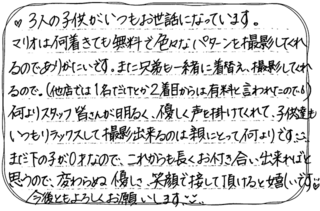 ♡3人の子供がいつもお世話になっています。
マリオは何着きても無料で色々なパターンを撮影してくれ
るのでありがたいです。また兄弟も一緒に着替え、撮影してくれ
るので。(他店では1名だけとか2着目からは有料と言われたので💧)
何よりスタッフ皆さんが明るく、優しく声を掛けてくれて、子供達も
いつもリラックスして撮影出来るのは親にとって何よりです
まだ下の子が0才なので、これからも長くお付き合い出来ればと
思うので、変わらぬ優しさ、笑顔で接して頂けると嬉しいです
今後ともよろしくお願いします